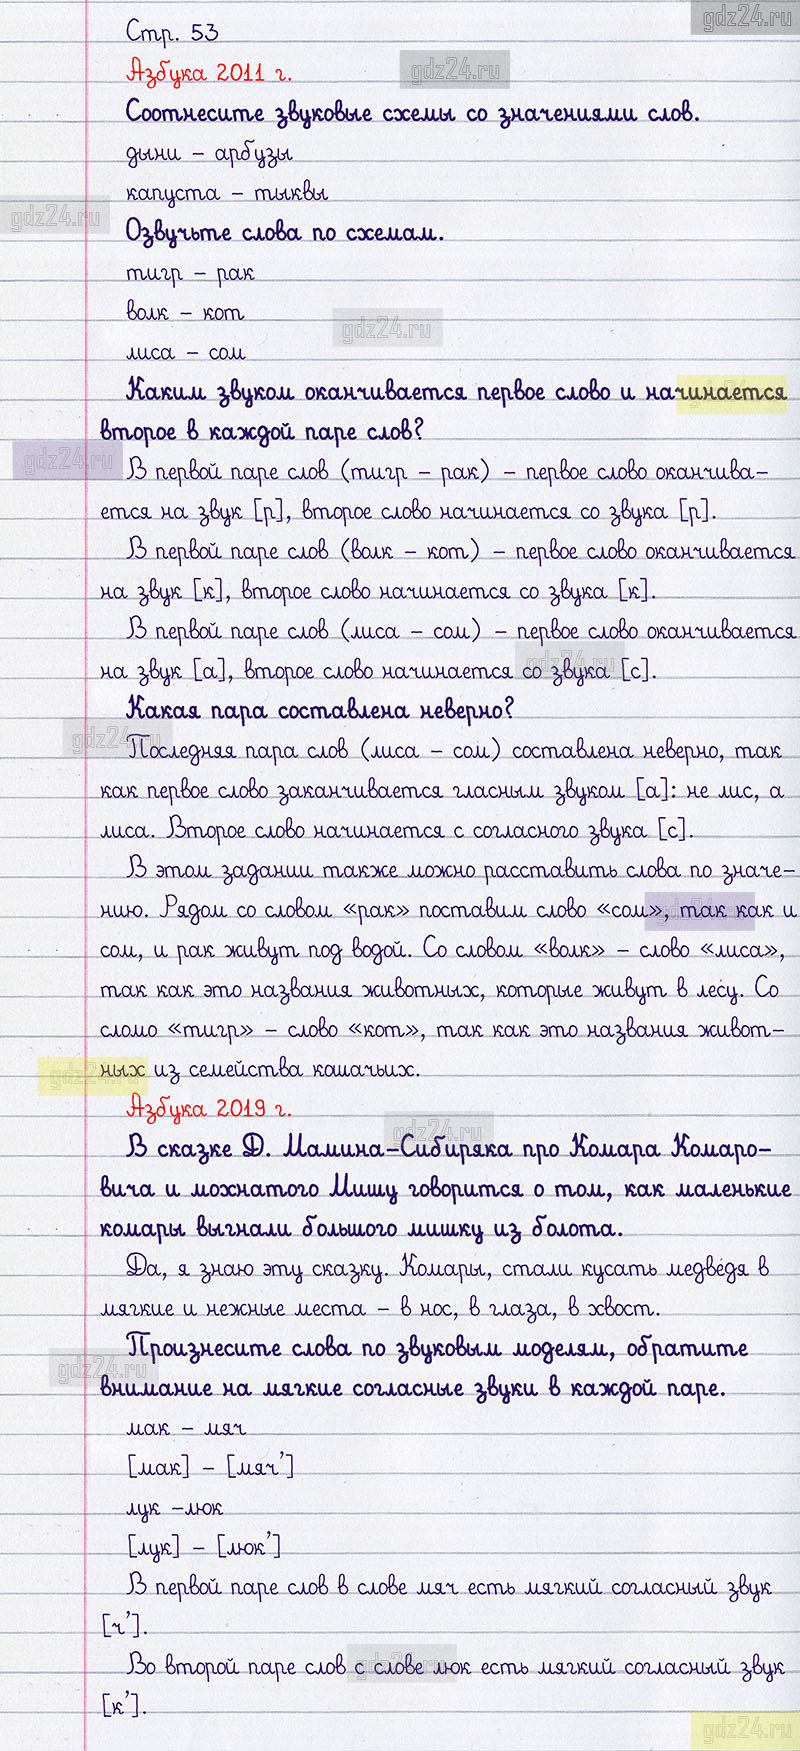 gdz24.ru
Стр. 53
Азбука 2011 г.
gdz24.ru
Соотнесите звуковые схемы со значениями слов.
дыни – арбузы
капуста – тыквы
gdz24.ru
Озвучьте слова по схемам.
тигр – рак
волк – кот
gdz24.ru
лиса – сом
Каким звуком оканчивается первое слово и начинается
второе в каждой паре слов?
gdz24.ru
В первой паре слов (тигр – рак) – первое слово оканчива-
ется на звук [р], второе слово начинается со звука [р].
В первой паре слов (волк – кот) – первое слово оканчивается
на звук [к], второе слово начинается со звука [к].
В первой паре слов (лиса – сом) – первое слово оканчивается
на звук [а], второе слово начинается со звука [с].
gdz24.ru
Какая пара составлена неверно?
gdz24.ru
Последняя пара слов (лиса – сом) составлена неверно, так
как первое слово заканчивается гласным звуком [а]: не лис, а
лиса. Второе слово начинается с согласного звука [с].
В этом задании также можно расставить слова по значе-
нию. Рядом со словом «рак» поставим слово «сом», так как и
сом, и рак живут под водой. Со словом «волк» – слово «лиса»,
так как это названия животных, которые живут в лесу. Со
сломо «тигр» – слово «кот», так как это названия живот-
ных из семейства кошачьих.
gdz24.ru
Азбука 2019 г.
gdz24.ru
В сказке Д. Мамина-Сибиряка про Комара Комаро-
вича и мохнатого Мишу говорится о том, как маленькие
комары выгнали большого мишку из болота.
Да, я знаю эту сказку. Комары, стали кусать медведя в
мягкие и нежные места – в нос, в глаза, в хвост.
Произнесите слова по звуковым моделям, обратите
gdz24.ru
внимание на мягкие согласные звуки в каждой паре.
мак – мяч
[мак] – [мяч’]
лук –люк
[лук] – [люк’]
В первой паре слов в слове мяч есть мягкий согласный звук
[ч’].
Во второй паре слов с слове люк есть мягкий согласный звук
gdz24.ru
[к’].
gdz24.ru